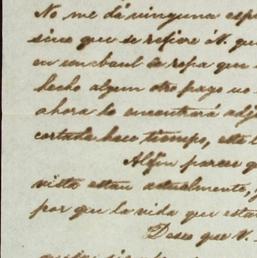 No me dá ninguna esp
sino que se refiere á V. qu
en un baul la ropa que
hecho algun otro pago no
ahora lo encontrará adj
cortada hace tiempo, este l
Al fin parece q
vista estan actualmente, y
por que la vida que esta
Deseo que V.